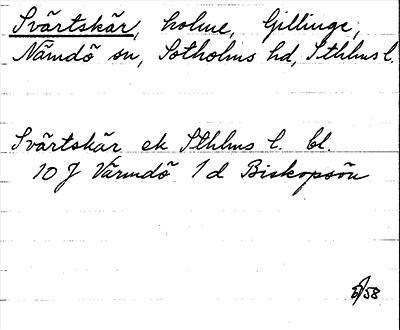 Svärtskär, holme, Gillinge,
Nämdö sn, Sotholms hd, Sthlms l.
Svärtskär ek Sthlms l. bl.
10 J Värmdö 1 d Biskopsön
58